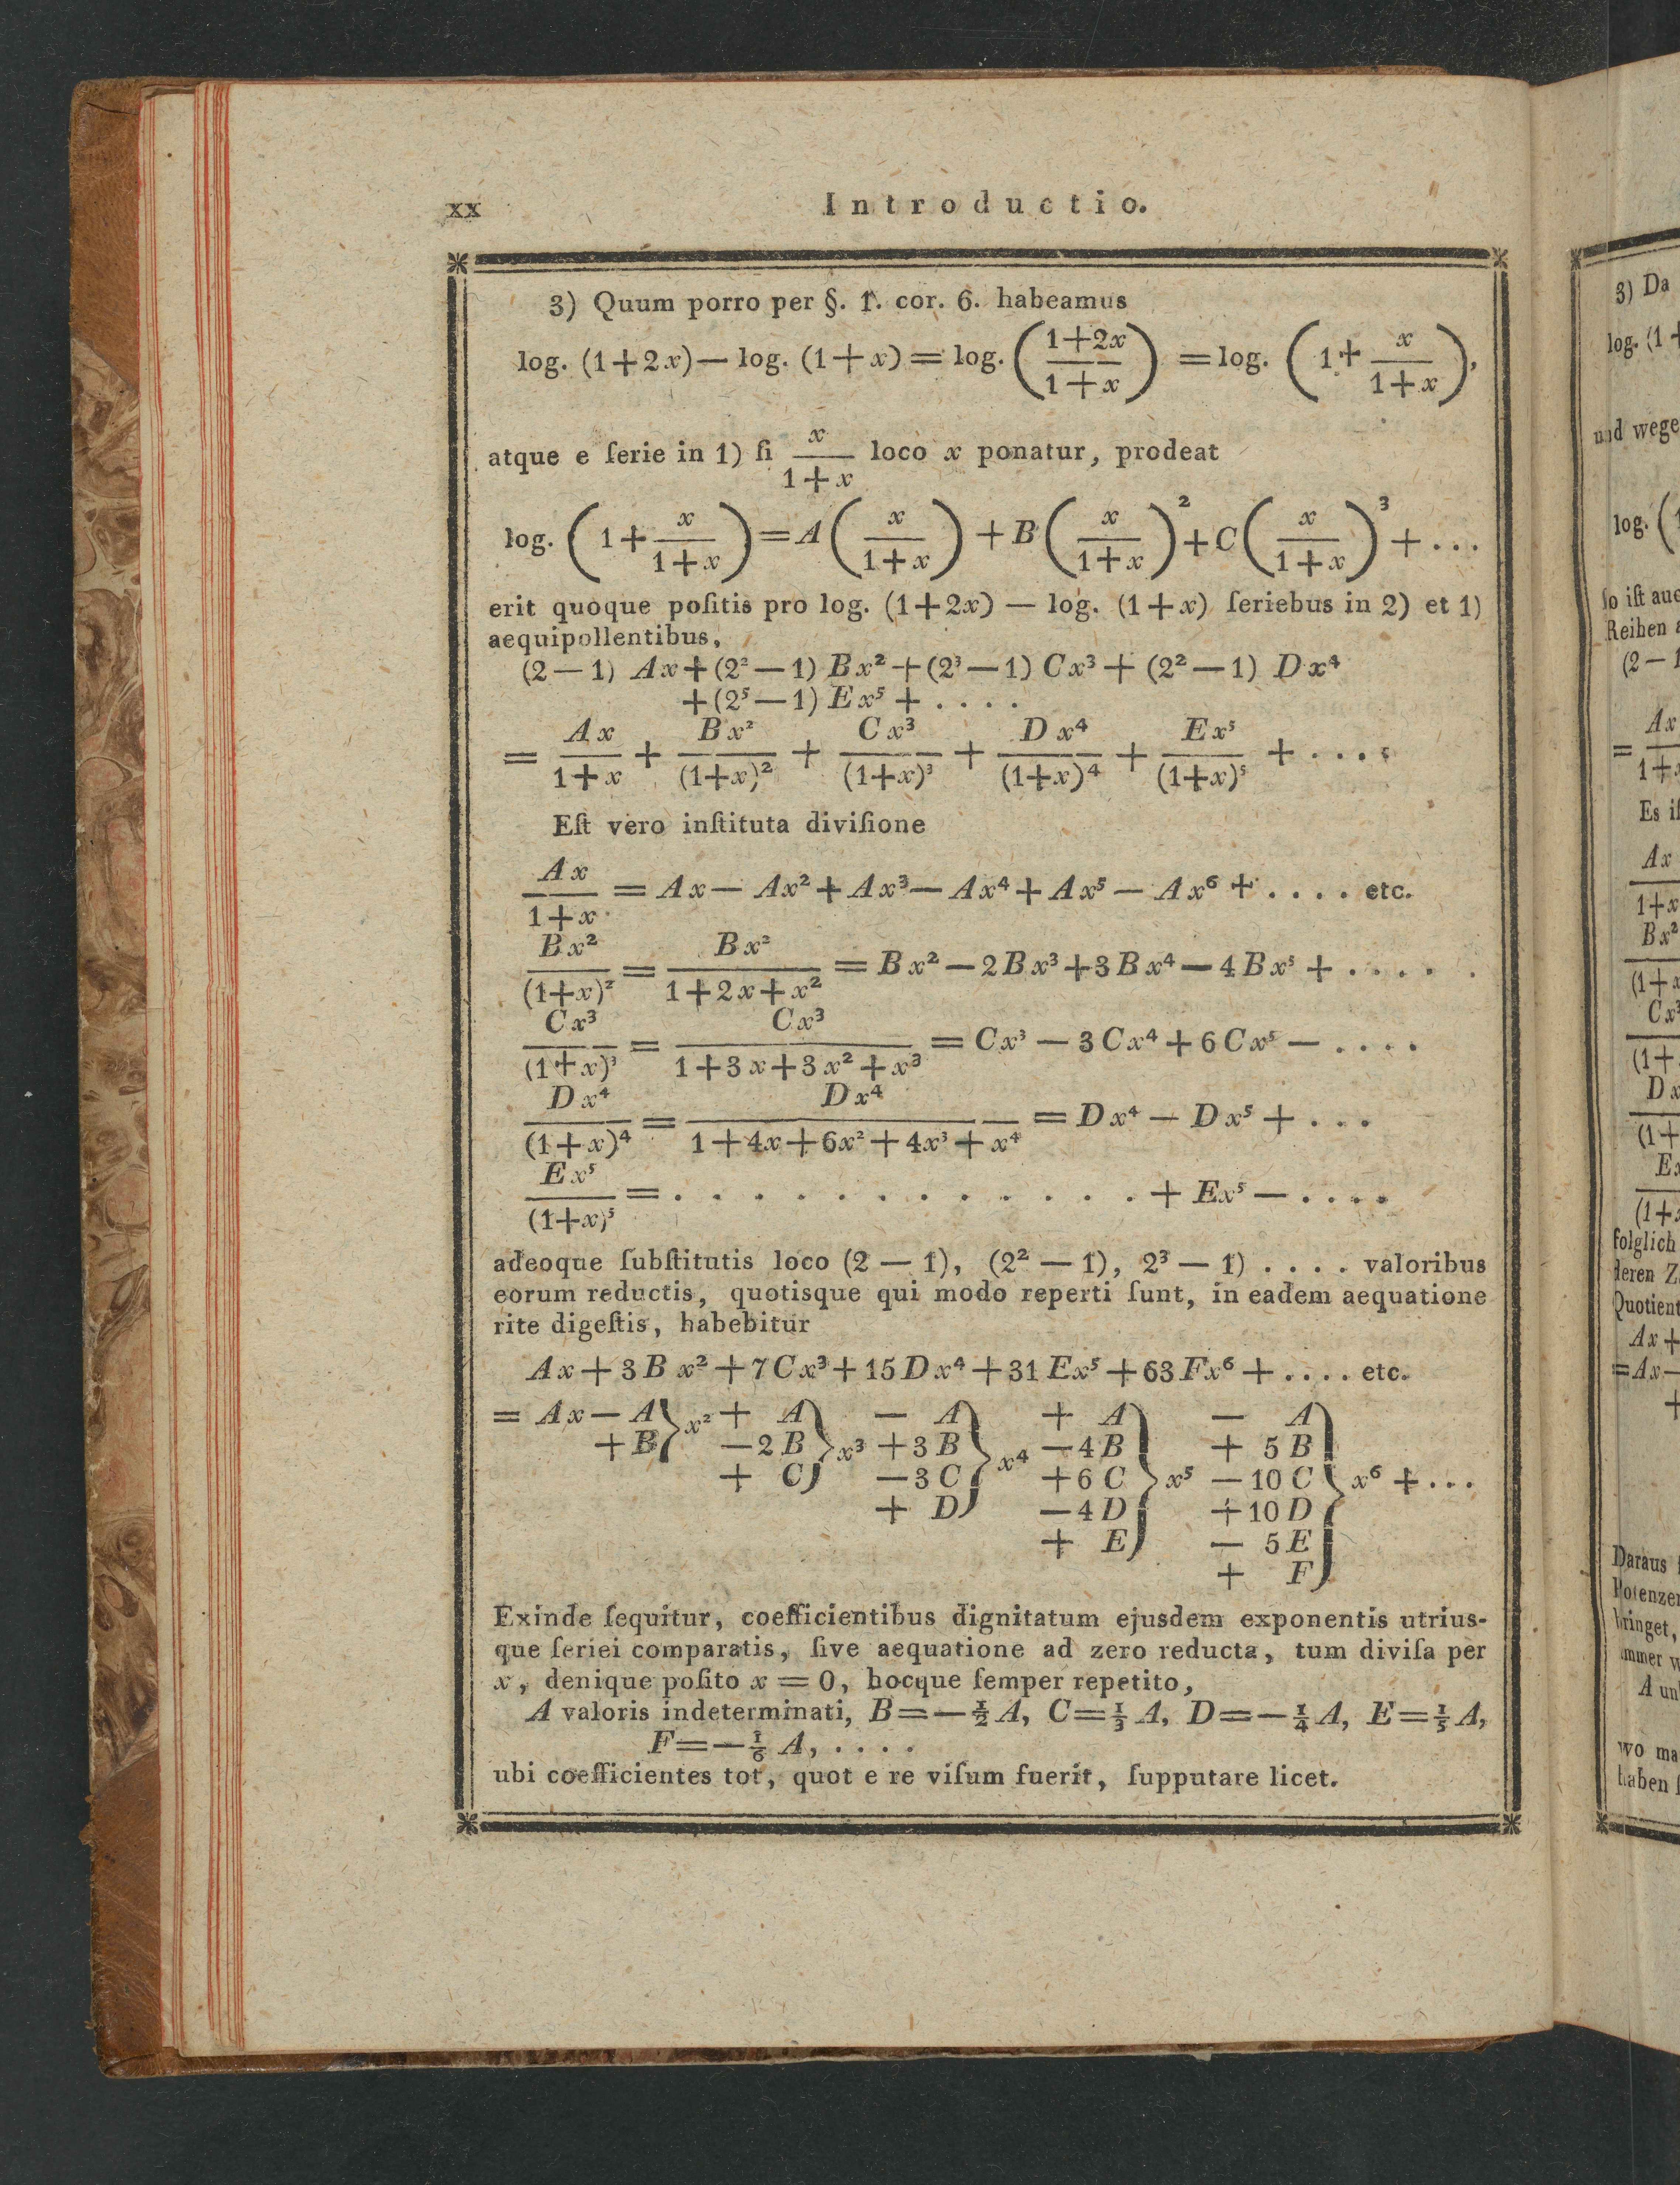 xx Introductio.
3) Quum porro per §. 1. cor. 6. habeamus
log. (1+2x) — log. (1+x) = log. ((1+2x)/(1+x)) = log. (1 + x/(1+x)),
atque e ſerie in 1) ſi x/(1+x) loco x ponatur, prodeat
log. (1 + x/(1+x)) = A (x/(1+x)) + B (x/(1+x))² + C (x/(1+x))³ + ...
erit quoque poſitis pro log. (1+2x) — log. (1+x) ſeriebus in 2) et 1)
aequipollentibus,
(2—1) Ax + (2²—1) Bx² + (2³—1) Cx³ + (2²—1) Dx⁴
+ (2⁵—1) Ex⁵ + ....
= Ax/(1+x) + Bx²/(1+x)² + Cx³/(1+x)³ + Dx⁴/(1+x)⁴ + Ex⁵/(1+x)⁵ + ....
Eſt vero inſtituta diviſione
Ax/(1+x) = Ax — Ax² + Ax³ — Ax⁴ + Ax⁵ — Ax⁶ + .... etc.
Bx²/(1+x)² = Bx²/(1+2x+x²) = Bx² — 2Bx³ + 3Bx⁴ — 4Bx⁵ + .....
Cx³/(1+x)³ = Cx³/(1+3x+3x²+x³) = Cx³ — 3Cx⁴ + 6Cx⁵ — ....
Dx⁴/(1+x)⁴ = Dx⁴/(1+4x+6x²+4x³+x⁴) = Dx⁴ — Dx⁵ + ...
Ex⁵/(1+x)⁵ = ............ + Ex⁵ — ....
adeoque ſubſtitutis loco (2 — 1), (2² — 1), 2³ — 1) .... valoribus
eorum reductis, quotisque qui modo reperti ſunt, in eadem aequatione
rite digeſtis, habebitur
Ax + 3Bx² + 7Cx³ + 15Dx⁴ + 31Ex⁵ + 63Fx⁶ + .... etc.
= Ax — A} x² + A} — A} + A} — A}
+ B} — 2B} x³ + 3B} x⁴ — 4B} + 5B}
+ C} — 3C} + 6C} x⁵ — 10C} x⁶ + ...
+ D} — 4D} + 10D}
+ E} — 5E}
+ F}
Exinde ſequitur, coefficientibus dignitatum ejusdem exponentis utrius-
que ſeriei comparatis, ſive aequatione ad zero reducta, tum diviſa per
x, denique poſito x = 0, hocque ſemper repetito,
A valoris indeterminati, B = — ½ A, C = ⅓ A, D = — ¼ A, E = ⅕ A,
F = — ⅙ A, ....
ubi coefficientes tot, quot e re viſum fuerit, ſupputare licet.
3) Da
log. (1+
und wege
log. (1
ſo iſt auc
Reihen
(2—1
= Ax
1+x
Es iſ
Ax
1+x
Bx²
(1+x
Cx³
(1+
Dx
(1+
Ex
(1+x
folglich
deren Z
Quotient
Ax +
= Ax —
+
Daraus
Potenzen
bringet,
immer w
A un
wo ma
haben ſ